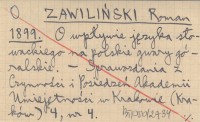 O ZAWILIŃSKI Roman
1899. O wpływie języka sło-
wackiego na polskie gwary gó-
ralskie. – Sprawozdania z
Czynności i Posiedzeń Akademii
Umiejętności w Krakowie (Kra-
ków) 4, nr 4.